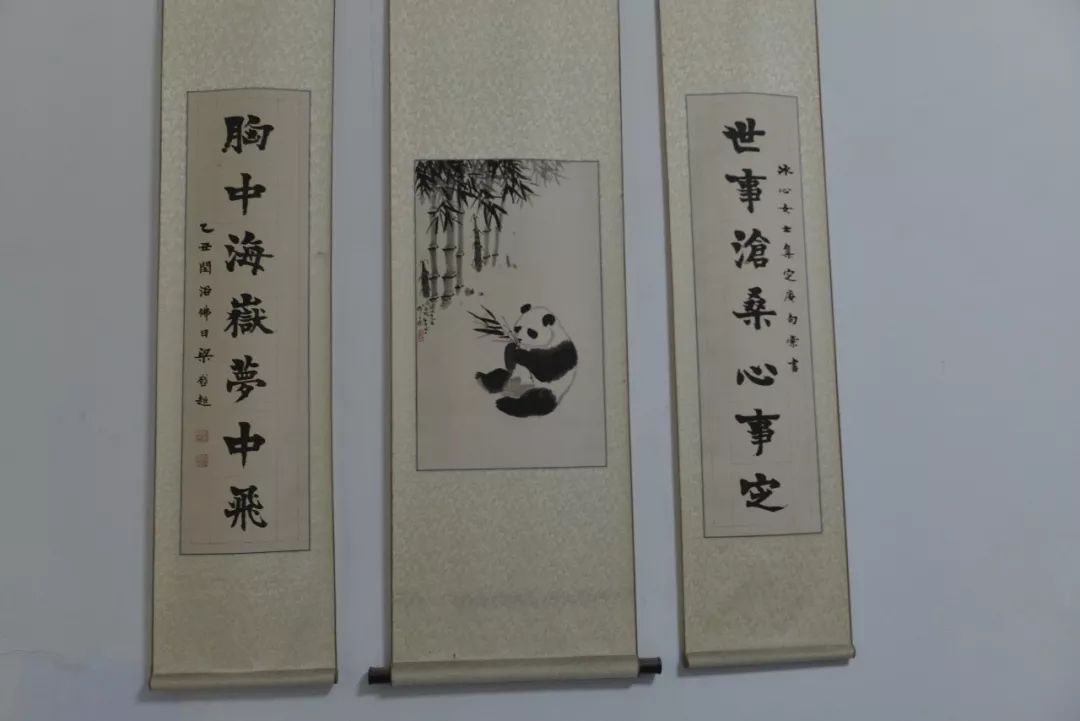 世事滄桑心事定
冰心女士集定庵句索書
胸中海嶽夢中飛
乙丑閏浴佛日梁啟超